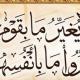 يغير ما بقوم
ما بأنفسهم